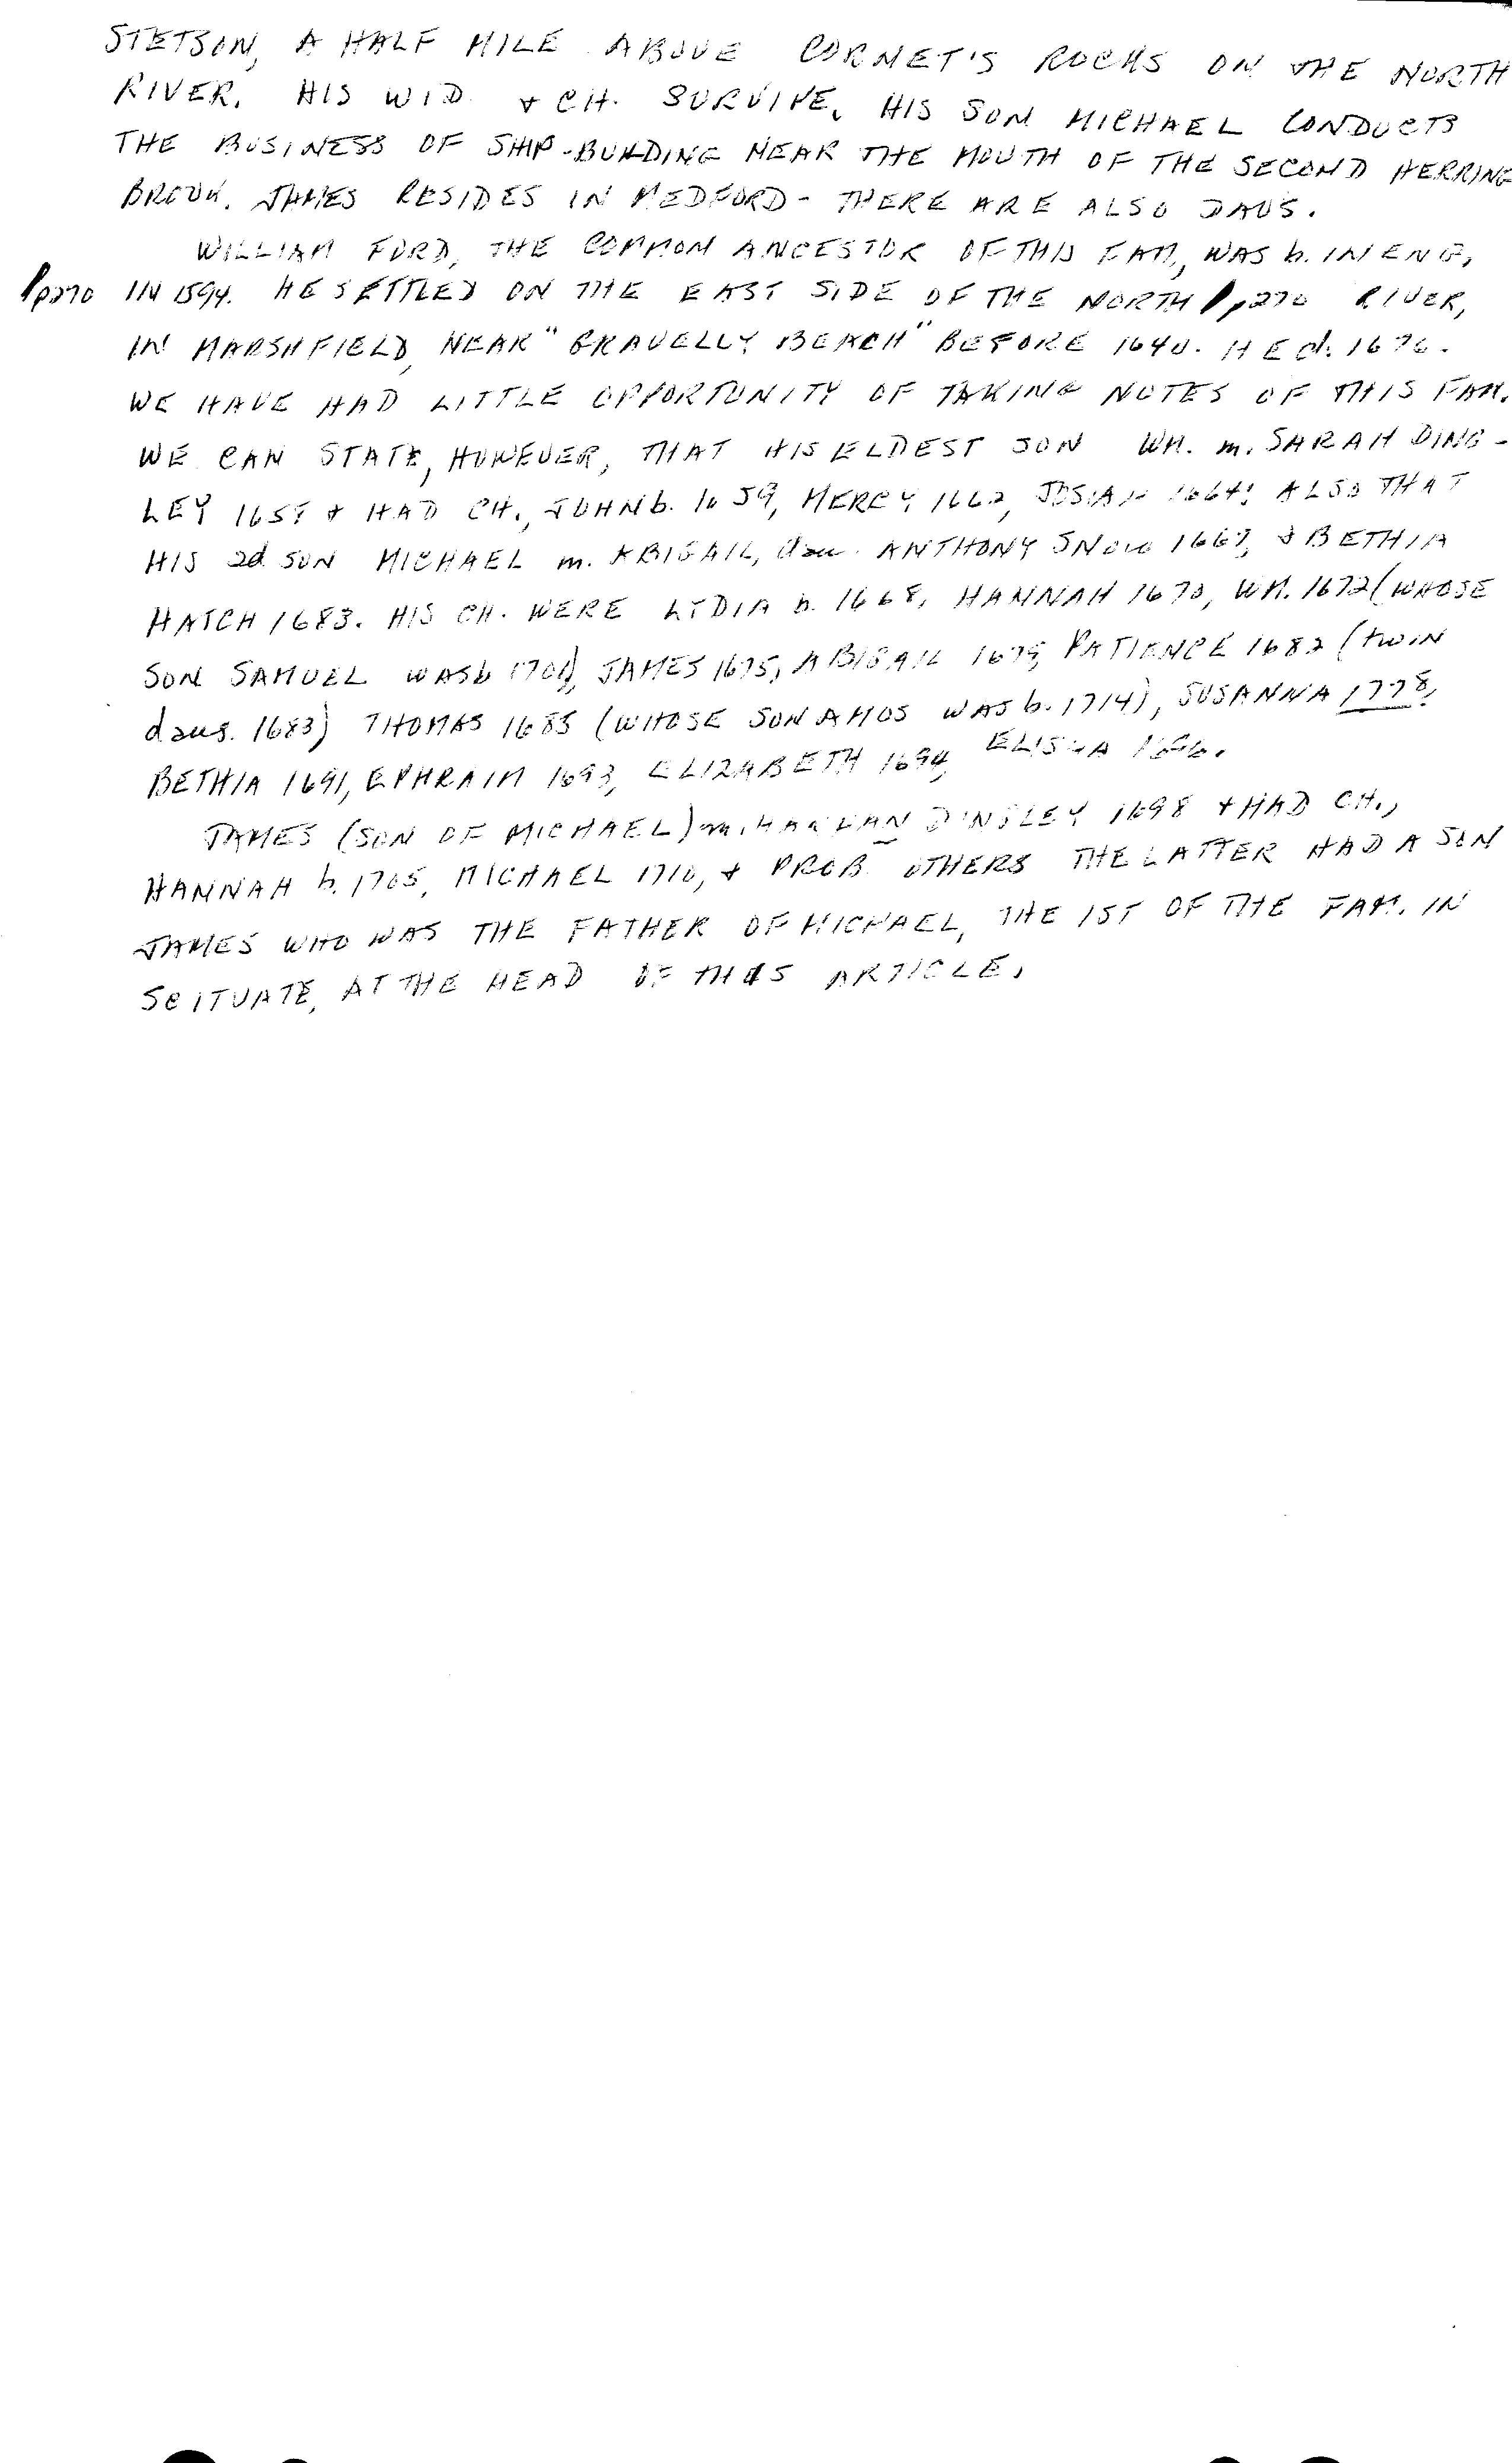 STETSON, A HALF MILE ABOVE CORNET'S ROCKS ON THE NORTH
RIVER. HIS WID. & CH. SURVIVE. HIS SON MICHAEL CONDUCTS
THE BUSINESS OF SHIP-BUILDING NEAR THE MOUTH OF THE SECOND HERRING
BROOK. JAMES RESIDES IN MEDFORD - THERE ARE ALSO DAUS.
WILLIAM FORD, THE COMMON ANCESTOR OF THIS FAM, WAS b. IN ENG,
/p270 IN 1594. HE SETTLED ON THE EAST SIDE OF THE NORTH /p270 RIVER,
IN MARSHFIELD, NEAR "GRAVELLY BEACH" BEFORE 1640. HE d. 1676.
WE HAVE HAD LITTLE OPPORTUNITY OF TAKING NOTES OF THIS FAM.
WE CAN STATE, HOWEVER, THAT HIS ELDEST SON WM. m. SARAH DING-
LEY & HAD CH., JOHN b. 1659, MERCY 1662, JOSIAH 1664; ALSO THAT
HIS 2d SON MICHAEL m. ABIGAIL, dau. ANTHONY SNOW & BETHIA
HATCH 1683. HIS CH. WERE LYDIA b. 1668, HANNAH 1670, WM. 1672 (WHOSE
SON SAMUEL WAS b JAMES 1675, ABIGAIL PATIENCE 1682 (twIN
daus. 1683) THOMAS 1685 (WHOSE SON AMOS WAS b. 1714), SUSANNA 1778,
BETHIA 1691, EPHRAIM 1693, ELIZABETH 1694, ELISHA
JAMES (SON OF MICHAEL) m. HANHAN DINGLEY 1698 & HAD CH.,
HANNAH b. 1705, MICHAEL 1710, & PROB. OTHERS THE LATTER HAD A SON
JAMES WHO WAS THE FATHER OF MICHAEL, THE 1ST OF THE FAM. IN
SCITUATE, AT THE HEAD OF THIS ARTICLE.